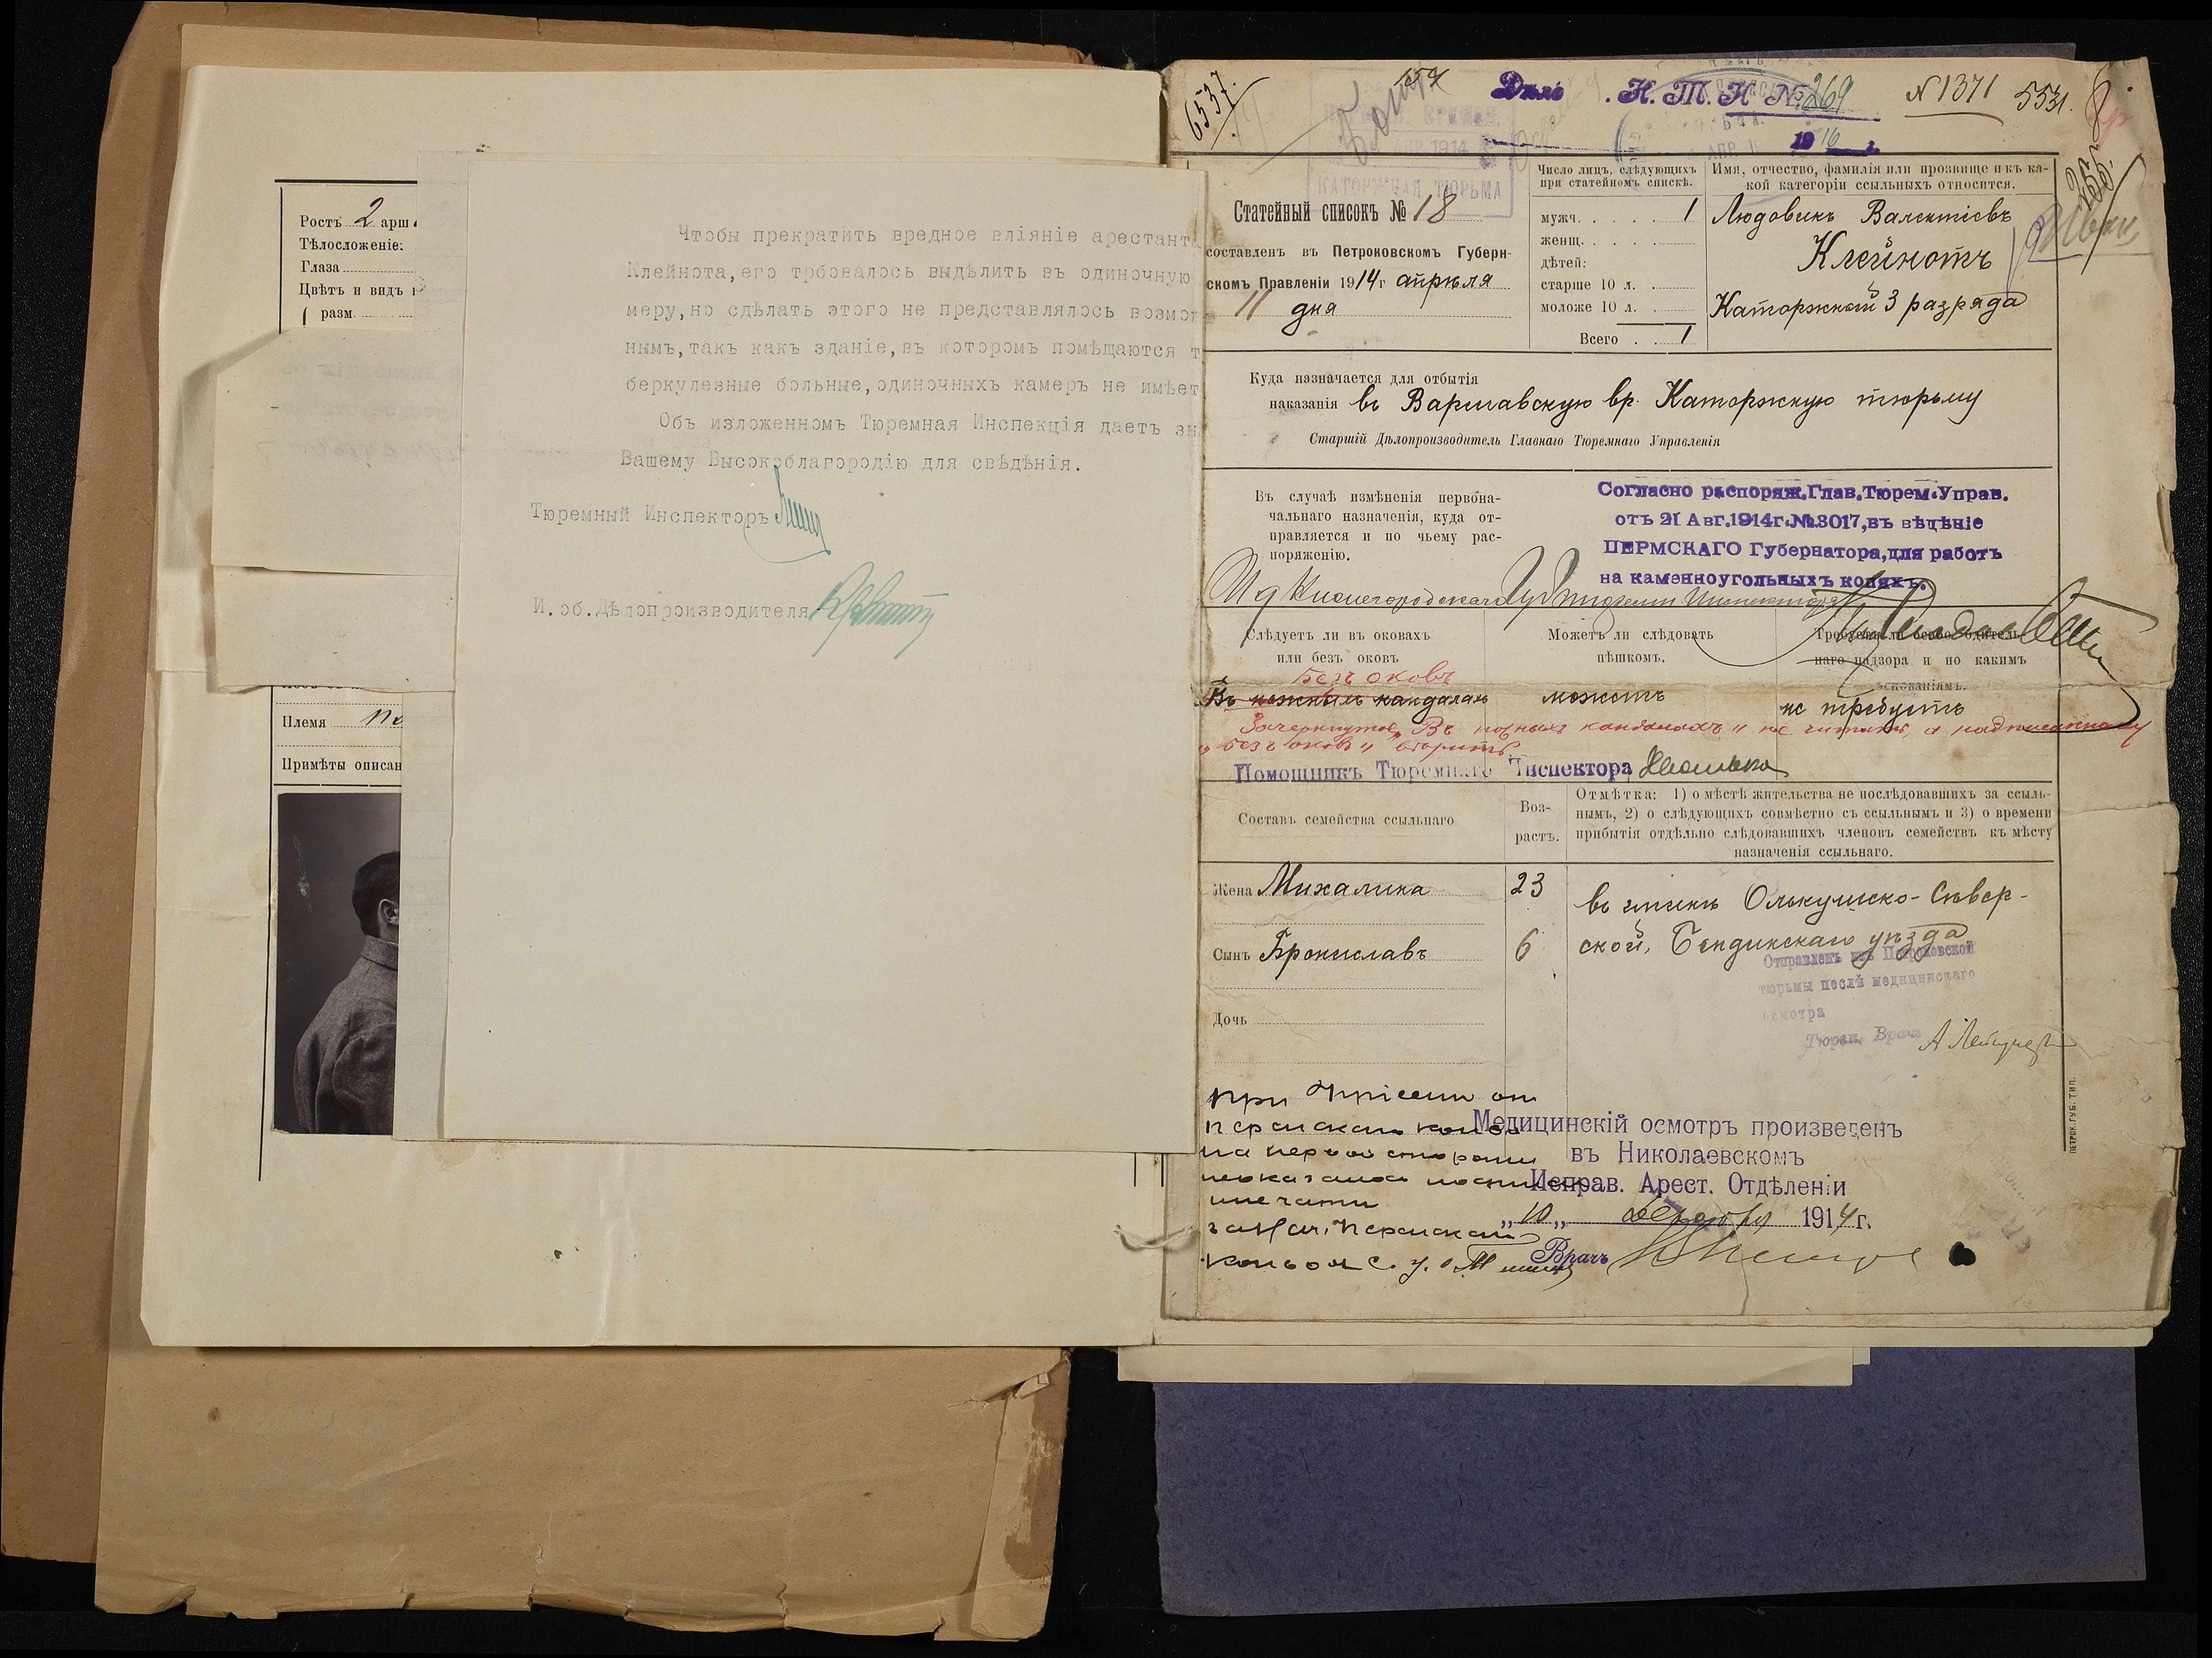 Ростъ 2 арш
Тѣлосложеніе:
Глаза
Цвѣтъ и видъ
разм.
Племя
Примѣты описан
Чтобы прекратить вредное вліяніе арестант
Клейнота,его трбовалось выдѣлить въ одиночную
меру,но сдѣлать этого не представлялось возмо
нымъ,такъ какъ зданіе,въ которомъ помѣщаются т
беркулезные больные,одиночныхъ камеръ не имѣет
Объ изложенномъ Тюремная Инспекція даетъ зн
Вашему Высокоблагородію для свѣдѣнія.
Тюремный Инспекторъ
И.об.Дѣлопроизводителя
6537.
Дѣло Н. Т. Н №269
1916 г.
N 1371
5531.
АПР 1914
КАТОРЖНАЯ ТЮРЬМА
Статейный списокъ № 18
составленъ въ Петроковскомъ Губерн-
скомъ Правленіи 1914 г апрѣля
11 дня
Число лицъ, слѣдующихъ
при статейномъ спискѣ.
мужч. 1
женщ.
дѣтей:
старше 10 л.
моложе 10 л.
Всего 1
Имя, отчество, фамилія или прозвище и къ ка-
кой категоріи ссыльныхъ относится.
Людовикъ Валентіевъ
Клейнотъ
Каторжный 3 разряда
Куда назначается для отбытія
наказанія въ Варшавскую вр. Каторжную тюрьму
Старшій Дѣлопроизводитель Главнаго Тюремнаго Управленія
Въ случаѣ измѣненія первона-
чальнаго назначенія, куда от-
правляется и по чьему рас-
поряженію.
Согласно распоряж.Глав.Тюрем.Управ.
отъ 21 Авг.1914г.№13017,въ вѣдѣніе
ПЕРМСКАГО Губернатора,для работъ
на каменноугольныхъ копяхъ.
Слѣдуетъ ли въ оковахъ
или безъ оковъ
Безъ оковъ
Въ ножныхъ кандалахъ
Можетъ ли слѣдовать
пѣшкомъ.
можетъ
Требуется ли особо бдитель-
наго надзора и по какимъ
основаніямъ.
не требуетъ
Зачеркнутое „Въ ножныхъ кандалахъ" не читать, а надписанному
„безъ оковъ"
Помощникъ Тюремнаго Инспектора
Составъ семейства ссыльнаго
Воз-
растъ.
Отмѣтка: 1) о мѣстѣ жительства не послѣдовавшихъ за ссыль-
нымъ, 2) о слѣдующихъ совмѣстно съ ссыльнымъ и 3) о времени
прибытія отдѣльно слѣдовавшихъ членовъ семействъ къ мѣсту
назначенія ссыльнаго.
Жена Михалина 23
въ гминѣ Олькушско-Сѣвер-
Сынъ Брониславъ 6
ской, Бендинскаго уѣзда
Отправленъ изъ Петроковской
тюрьмы послѣ медицинскаго
осмотра
Тюрем. Врачъ
Дочь
ПЕТРОК. ГУБ. ТИП.
при
Медицинскій осмотръ произведенъ
въ Николаевскомъ
Исправ. Арест. Отдѣленіи
„10„ декабря 1914 г.
Врачъ